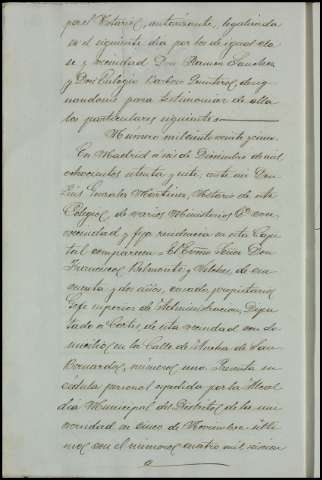 por el Notario, autorizante, legalizada
en el siguiente dia por los de igual cla-
se y vecindad Don Ramon Sanchez
y Don Eulogio Barbero Quintero, desig-
nandome para testimoniar de ella
los particulares siguientes
Numero mil ciento veinte y cinco
En Madrid a seis de Diciembre de mil
ochocientos setenta y siete, ante mi Don
Luis Gonzalez Martinez, Notario de este
Colegio, de varios Ministerios Ca con
vecindad y fija residencia en esta Capi-
tal comparecen = El Excmo Señor Don
Francisco Belmonte y Vilches, de cin-
cuenta y dos años, casado, propietario
Gefe superior de Administracion, Dipu-
tado a Cortes, de esta vecindad con do-
micilio en la Calle Ancha de San
Bernardo, numero uno. Presenta su
cédula personal expedida por la Alcal-
dia Municipal del Distrito de la Uni-
versidad en cinco de Noviembre ulti-
mo, con el numero cuatro mil